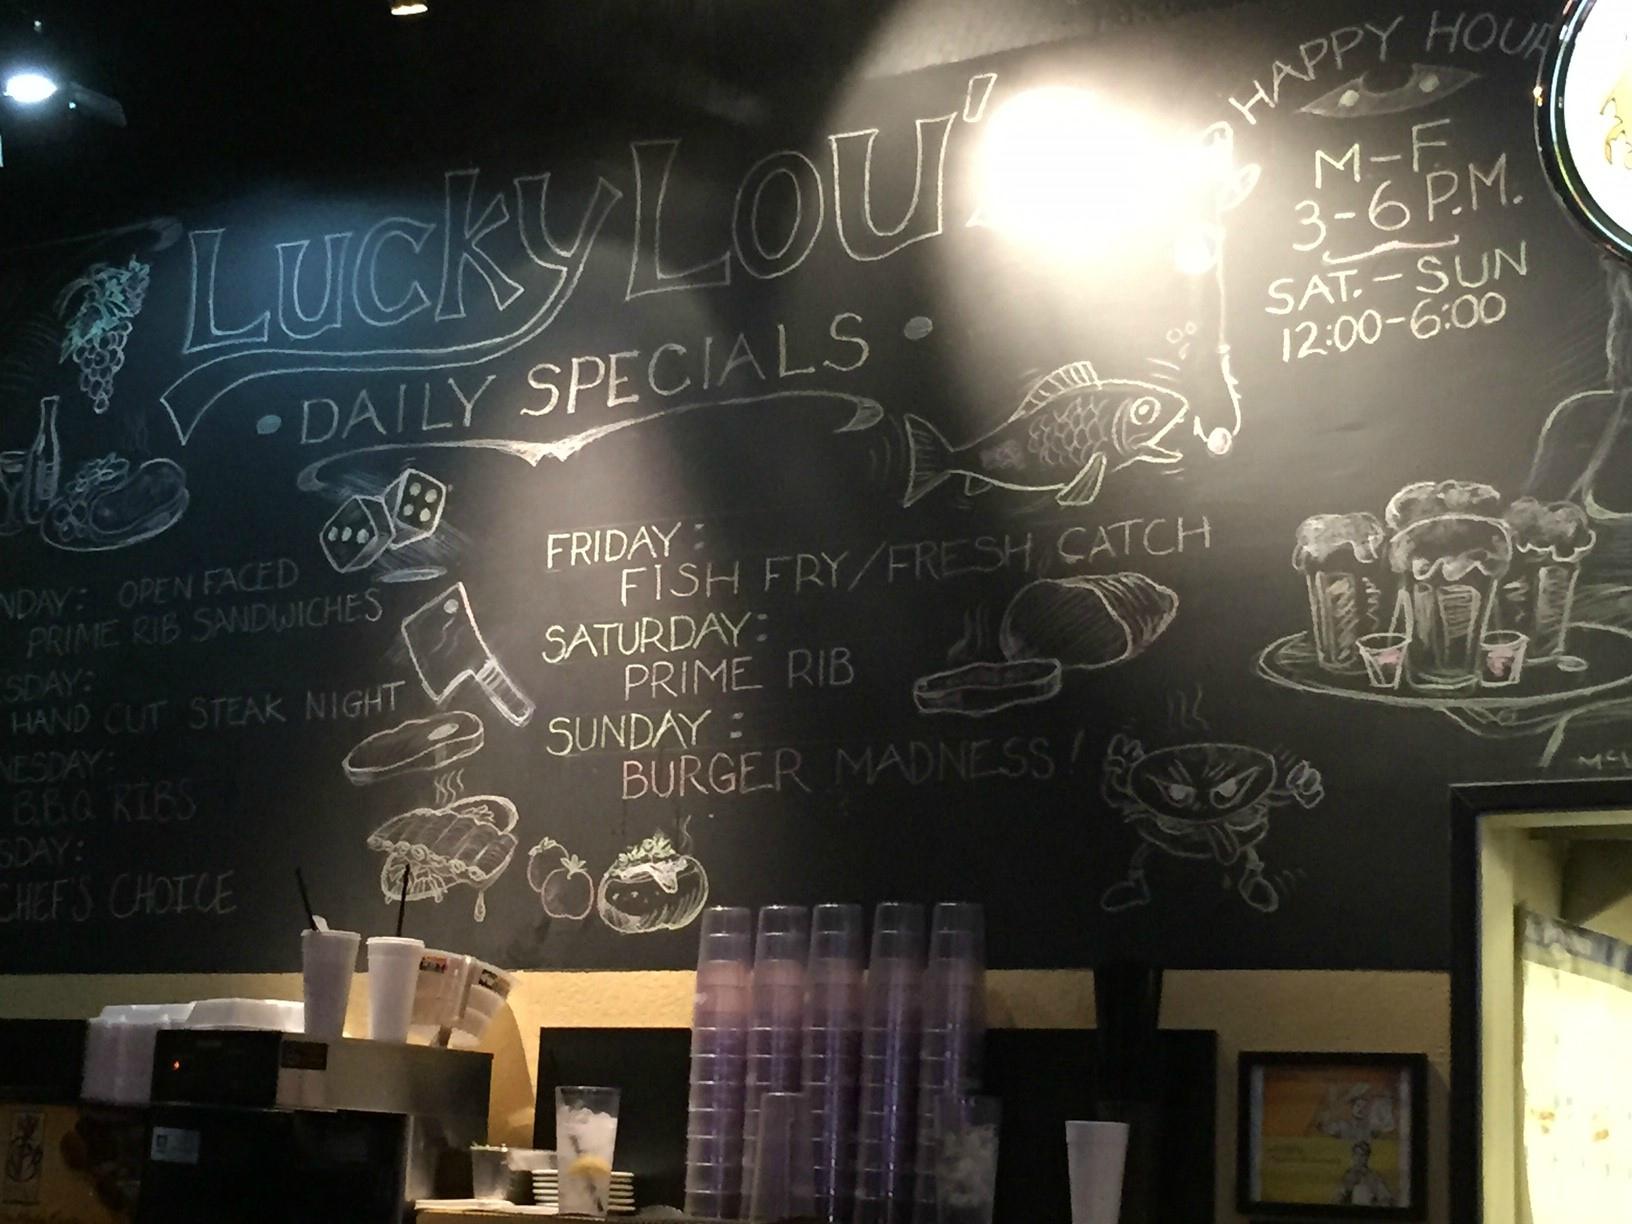 LUCKY LOU'
• DAILY SPECIALS •
HAPPY HOUR
M-F
3-6 P.M.
SAT.-SUN
12:00-6:00
NDAY: OPEN FACED
PRIME RIB SANDWICHES
SDAY:
HAND CUT STEAK NIGHT
NESDAY:
B.B.Q RIBS
SDAY:
CHEF'S CHOICE
FRIDAY:
FISH FRY/FRESH CATCH
SATURDAY:
PRIME RIB
SUNDAY:
BURGER MADNESS!